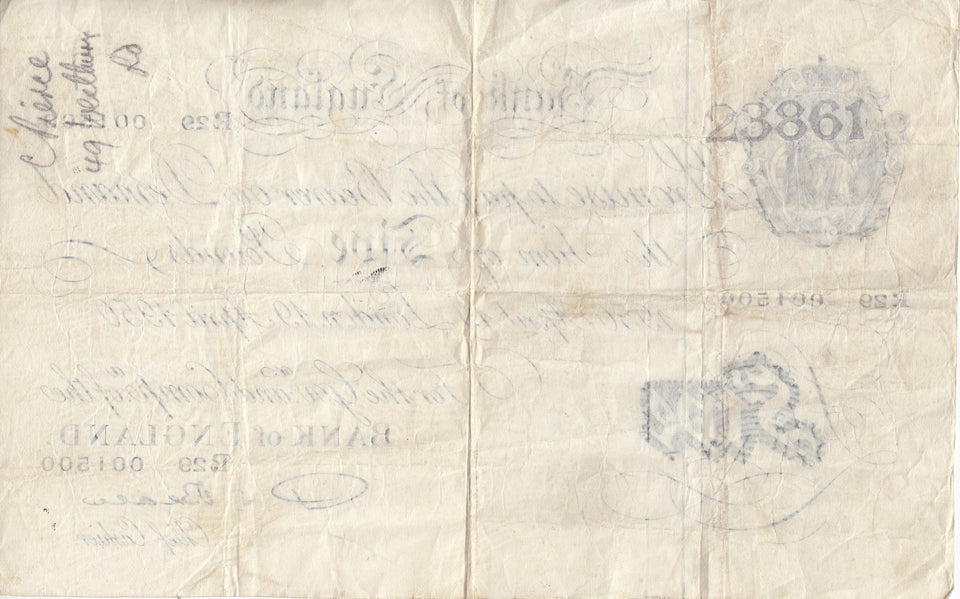 49
Rd
Bank of England
23861
R29 001500
Promise to pay the Bearer on Demand
the Sum of Five Pounds
R29 001500
1950 April 19 London 19 April 1950
For the Govr. and Compa. of the
BANK of ENGLAND.
R29 001500
Beale
Chief Cashier